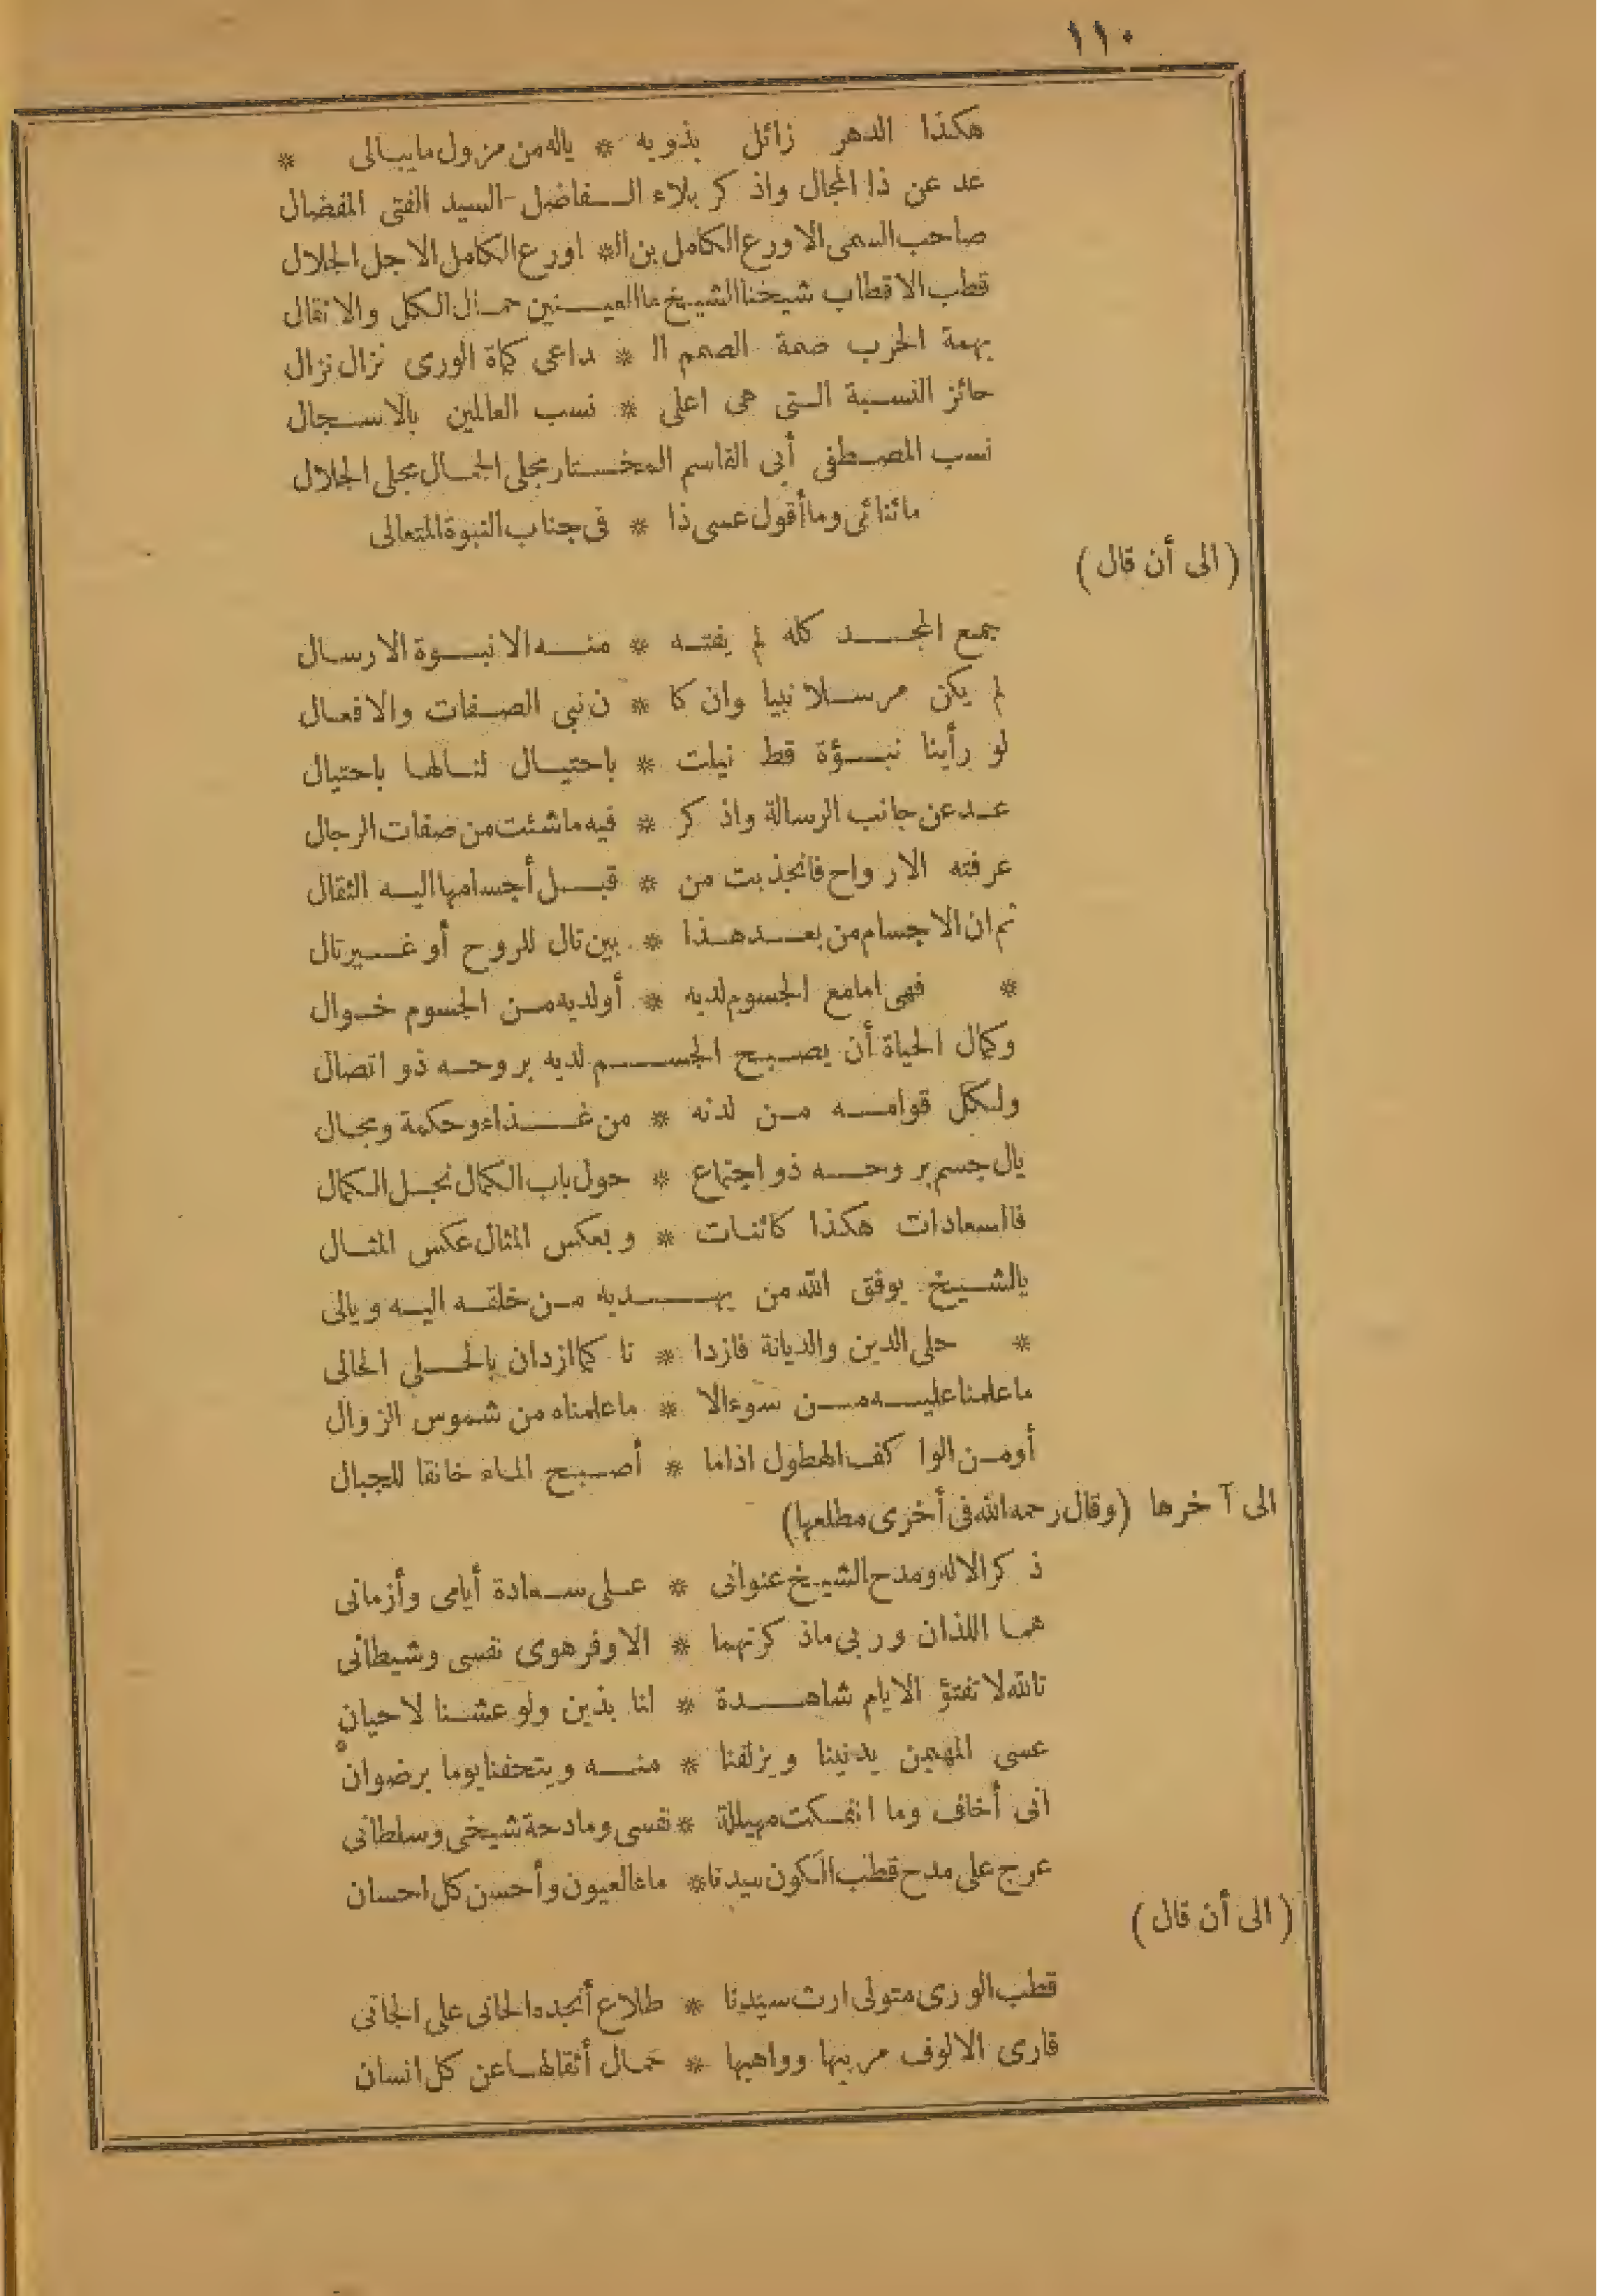 ١١٠
هكذا الدهر زائل بذويه * ياله من مزول مايبالى *
عد عن ذا المجال واذ كر بلاء الـفاضل السيد الفتى المفضال
صاحب السمى الاورع الكامل بن ال* اورع الكامل الاجل الجلال
قطب الاقطاب شيخنا الشيخ ما العينين حمال الكل والاثقال
بهمة الحرب صمة الصمم ال * داعى كماة الورى نزال نزال
حائز النسبة التى هى اعلى * نسب العالمين بالاسجال
نسب المصطفى أبى القاسم المختار مجلى الجمال مجلى الجلال
ماثنائى وماأقول عسى ذا * فى جناب النبوة المتعالى
(الى أن قال)
جمع المجد كله لم يفته * منه الا نبوة الارسال
لم يكن مرسلا نبيا وان كا * ن نبى الصفات والافعال
لو رأينا نبؤة قط نيلت * باحتيال لنالها باحتيال
عد عن جانب الرسالة واذ كر * فيه ماشئت من صفات الرجال
عرفته الارواح فانجذبت من * قبل أجسامها اليه الثقال
ثم ان الاجسام من بعد هذا * بين تال للروح أو غير تال
* فهى امامع الجسوم لديه * أولديه من الجسوم خوال
وكمال الحياة أن يصبح الجسم لديه بروحه ذو اتصال
ولكل قوامه من لدنه * من غذاء وحكمة ومجال
يال جسم بروحه ذو اجتماع * حول باب الكمال نجل الكمال
فالسعادات هكذا كائنات * وبعكس المثال عكس المثال
يالشيخ يوفق الله من يهديه من خلقه اليه ويالى
* حلى الدين والديانة فازدا * نا كما ازدان بالحلي الحالى
ماعلمنا عليه من سوء الا * ماعلمناه من شموس الزوال
أومن الوا كف الهطول اذاما * أصبح الماء خانقا للجبال
الى آخرها (وقال رحمه الله فى أخرى مطلعها)
ذ كر الاله ومدح الشيخ عنوانى * على سعادة أيامى وأزمانى
هما اللذان وربى ماذ كرتهما * الا وفر هوى نفسى وشيطانى
تالله لا تفتؤ الايام شاهدة * لنا بذين ولو عشنا لاحيان
عسى المهيمن يدنينا ويزلفنا * منه ويتحفنا يوما برضوان
انى أخاف وما انفكت مهيللة * نفسى ومادحة شيخى وسلطانى
عرج على مدح قطب الكون سيدنا * ماء العيون وأحسن كل احسان
(الى أن قال)
قطب الورى متولى ارث سيدنا * طلاع أنجده الحانى على الجانى
قارى الالوف مربيها وواهبها * حمال أثقالها عن كل انسان